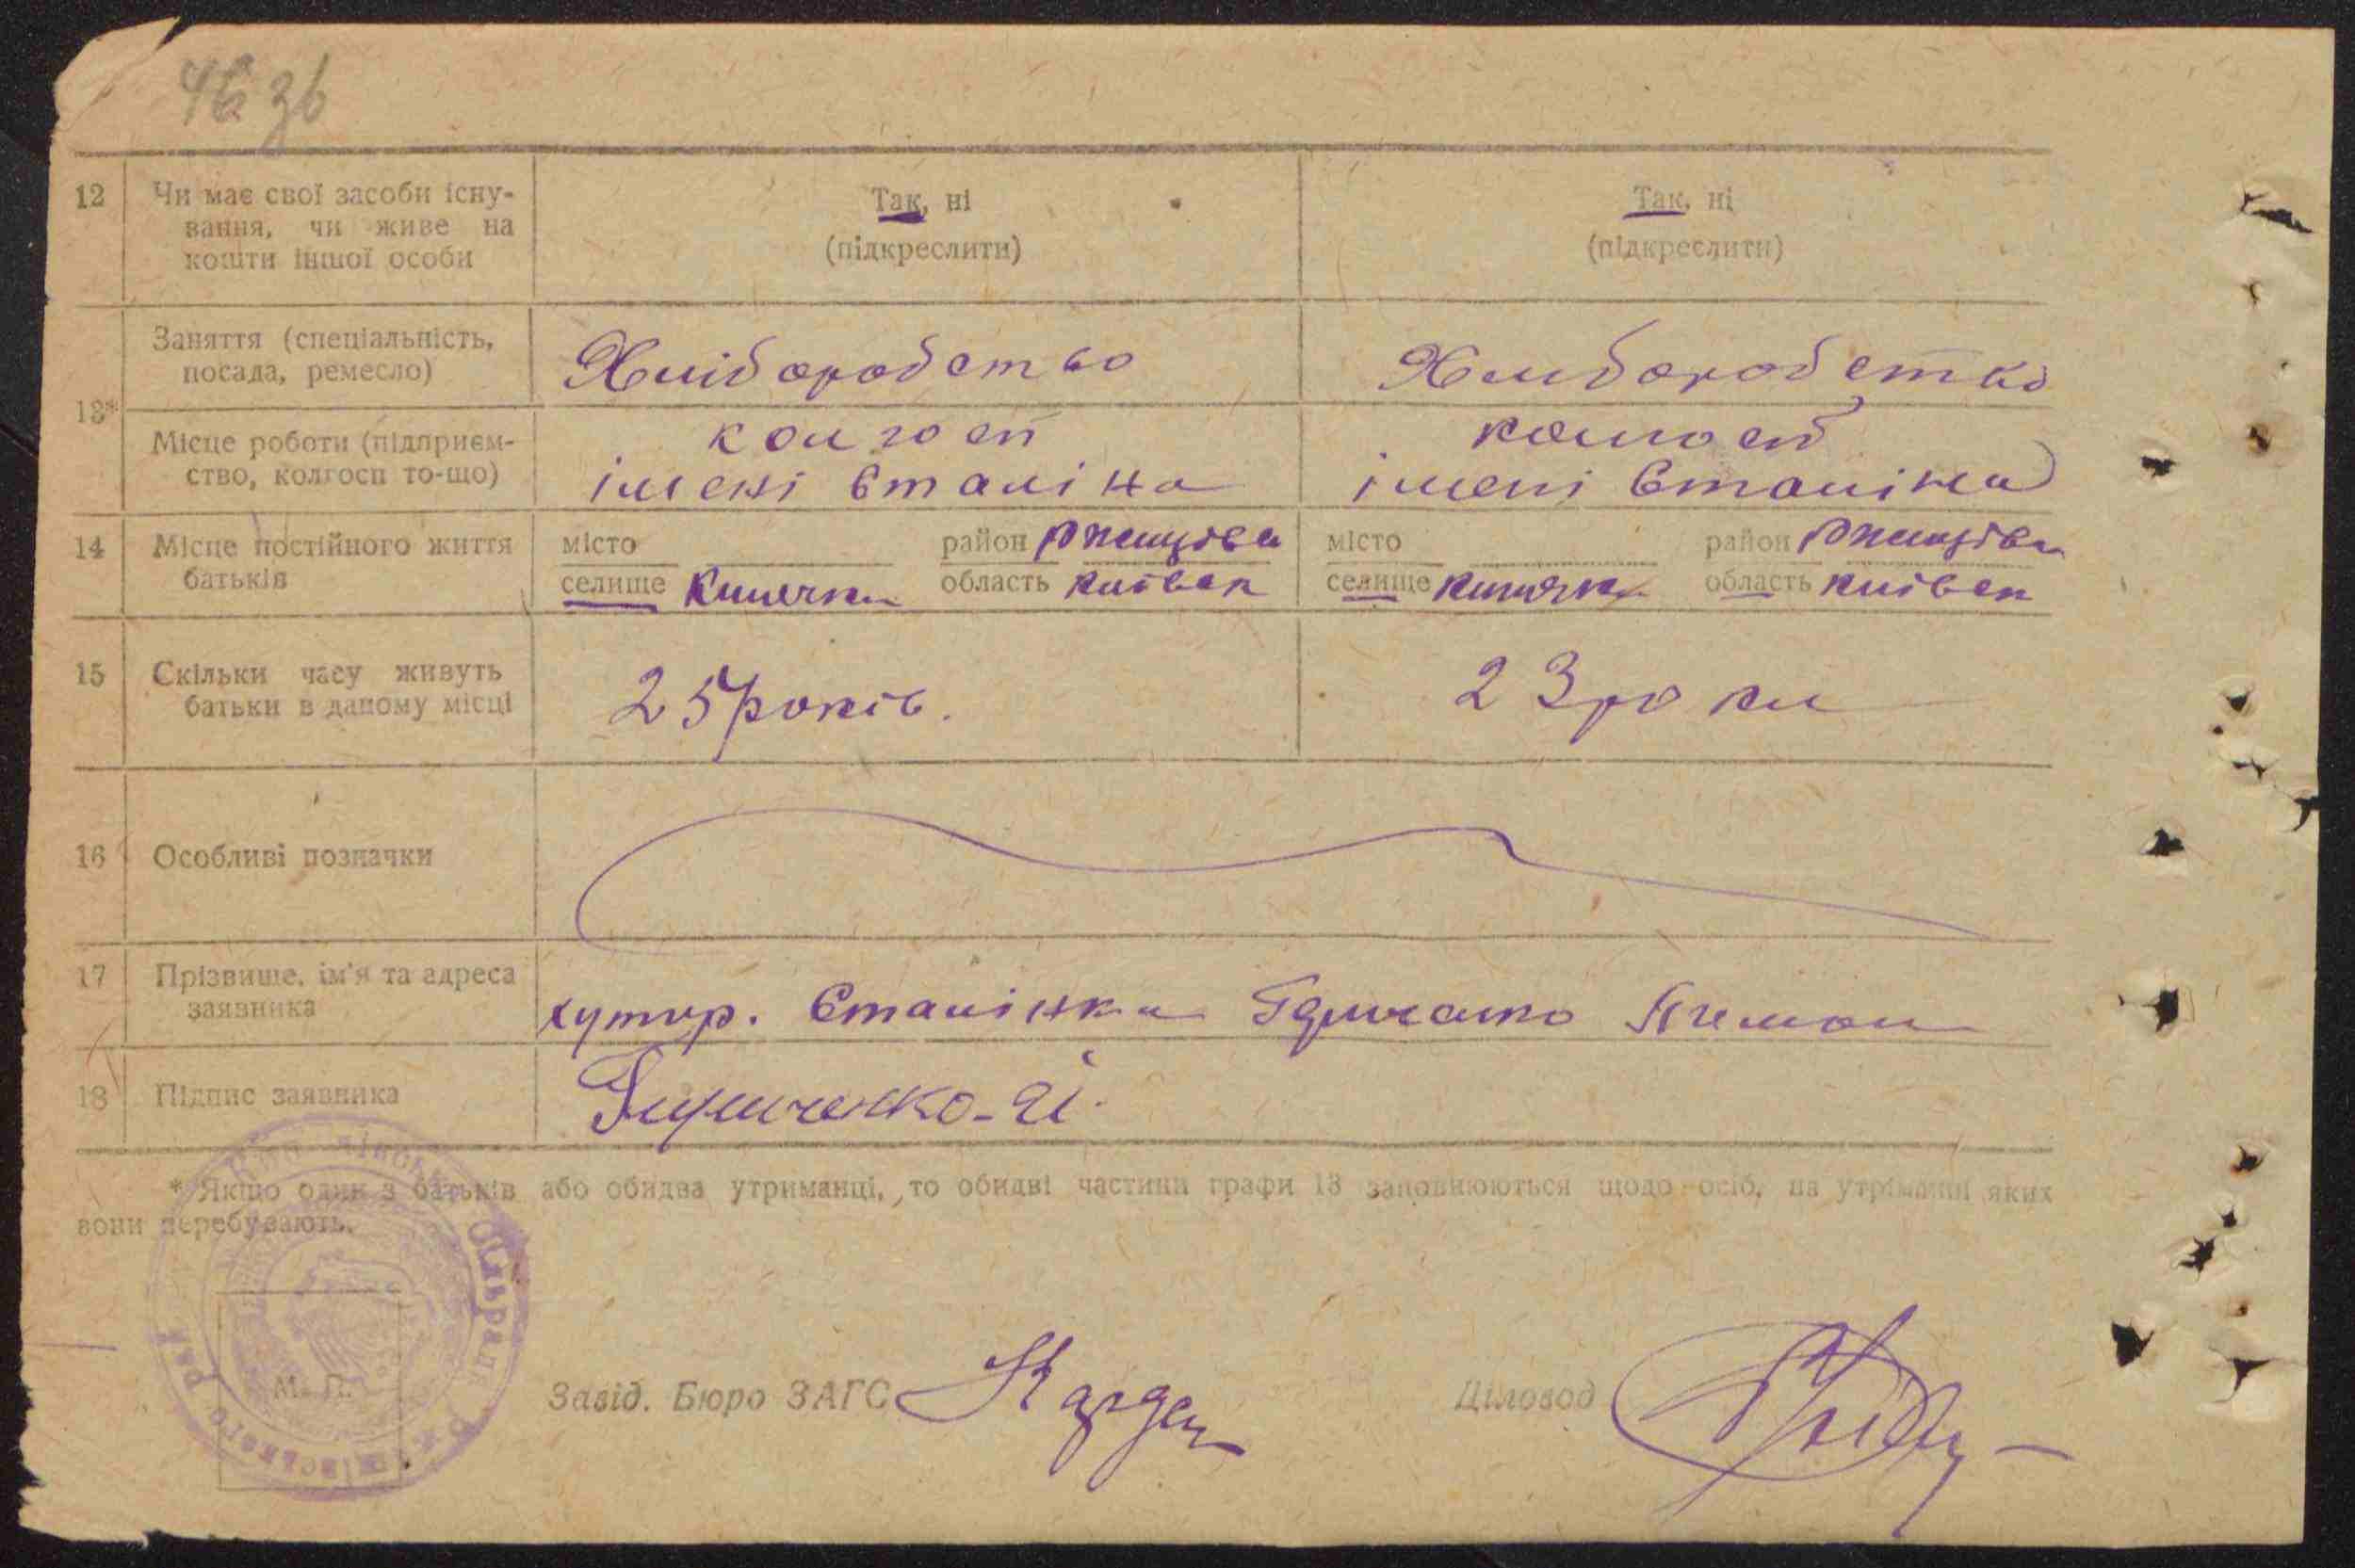 46 зв
12 Чи має свої засоби існу- Так, ні Так, ні
вання, чи живе на
кошти іншої особи (підкреслити) (підкреслити)
Заняття (спеціальність,
посада, ремесло) Хліборобство Хліборобство
13*
Місце роботи (підприєм- колгосп колгосп
ство, колгосп то-що) імені Сталіна імені Сталіна
14 Місце постійного життя місто район Ржищівск місто район Ржищівск
батьків селище Кипячка область Київск селище Кипячка область Київск
15 Скільки часу живуть
батьки в даному місці 25 років. 23 роки
16 Особливі позначки
17 Прізвище, ім'я та адреса
заявника хутир. Сталінка
18 Підпис заявника
* Якщо один з батьків або обидва утриманці, то обидві частини графи 13 заповнюються щодо осіб, на утриманні яких
вони перебувають.
М. П.
Завід. Бюро ЗАГС Діловод